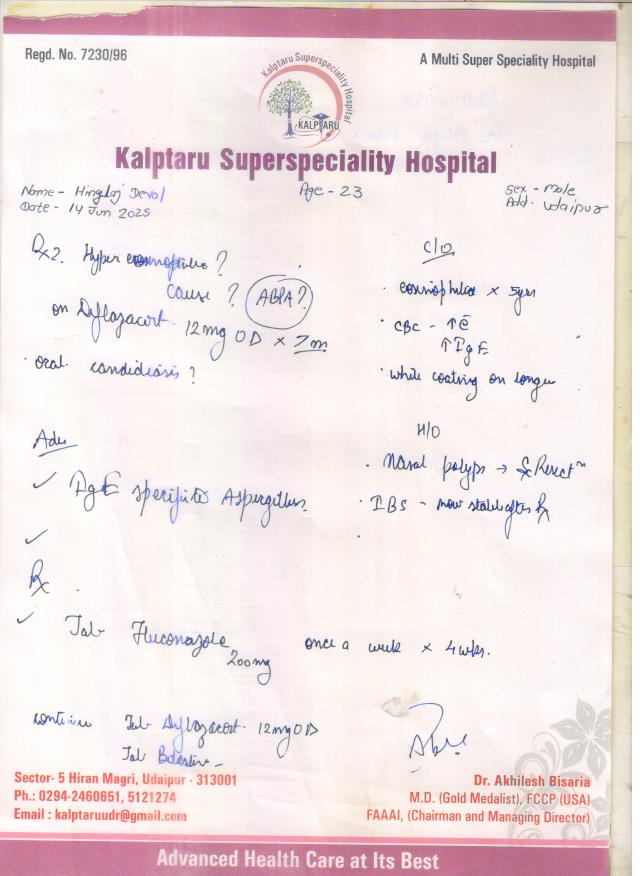 Regd. No. 7230/96
A Multi Super Speciality Hospital
Kalptaru Superspeciality Hospital
KALPTARU
Kalptaru Superspeciality Hospital
Name - Hinglaj Deval
Age - 23
Sex - male
Date - 14 Jun 2025
Add. Udaipur
C/O
Hyper ?
cause ? ABPA ?
on Dyflazacort 12mg OD × 7m
oral candidiasis ?
× 5yrs
CBC - ↑E
↑IgE
while coating on
H/O
Nasal polyps →
IBS - now stable after Rx
Adv
IgE specific to Aspergillus
Rx
Tab Fluconazole 200mg once a week × 4wks.
continue Tab Dyflazacort 12mg OD
Tab
Sector- 5 Hiran Magri, Udaipur - 313001
Ph.: 0294-2460651, 5121274
Email : kalptaruudr@gmail.com
Dr. Akhilesh Bisaria
M.D. (Gold Medalist), FCCP (USA)
FAAAI, (Chairman and Managing Director)
Advanced Health Care at Its Best